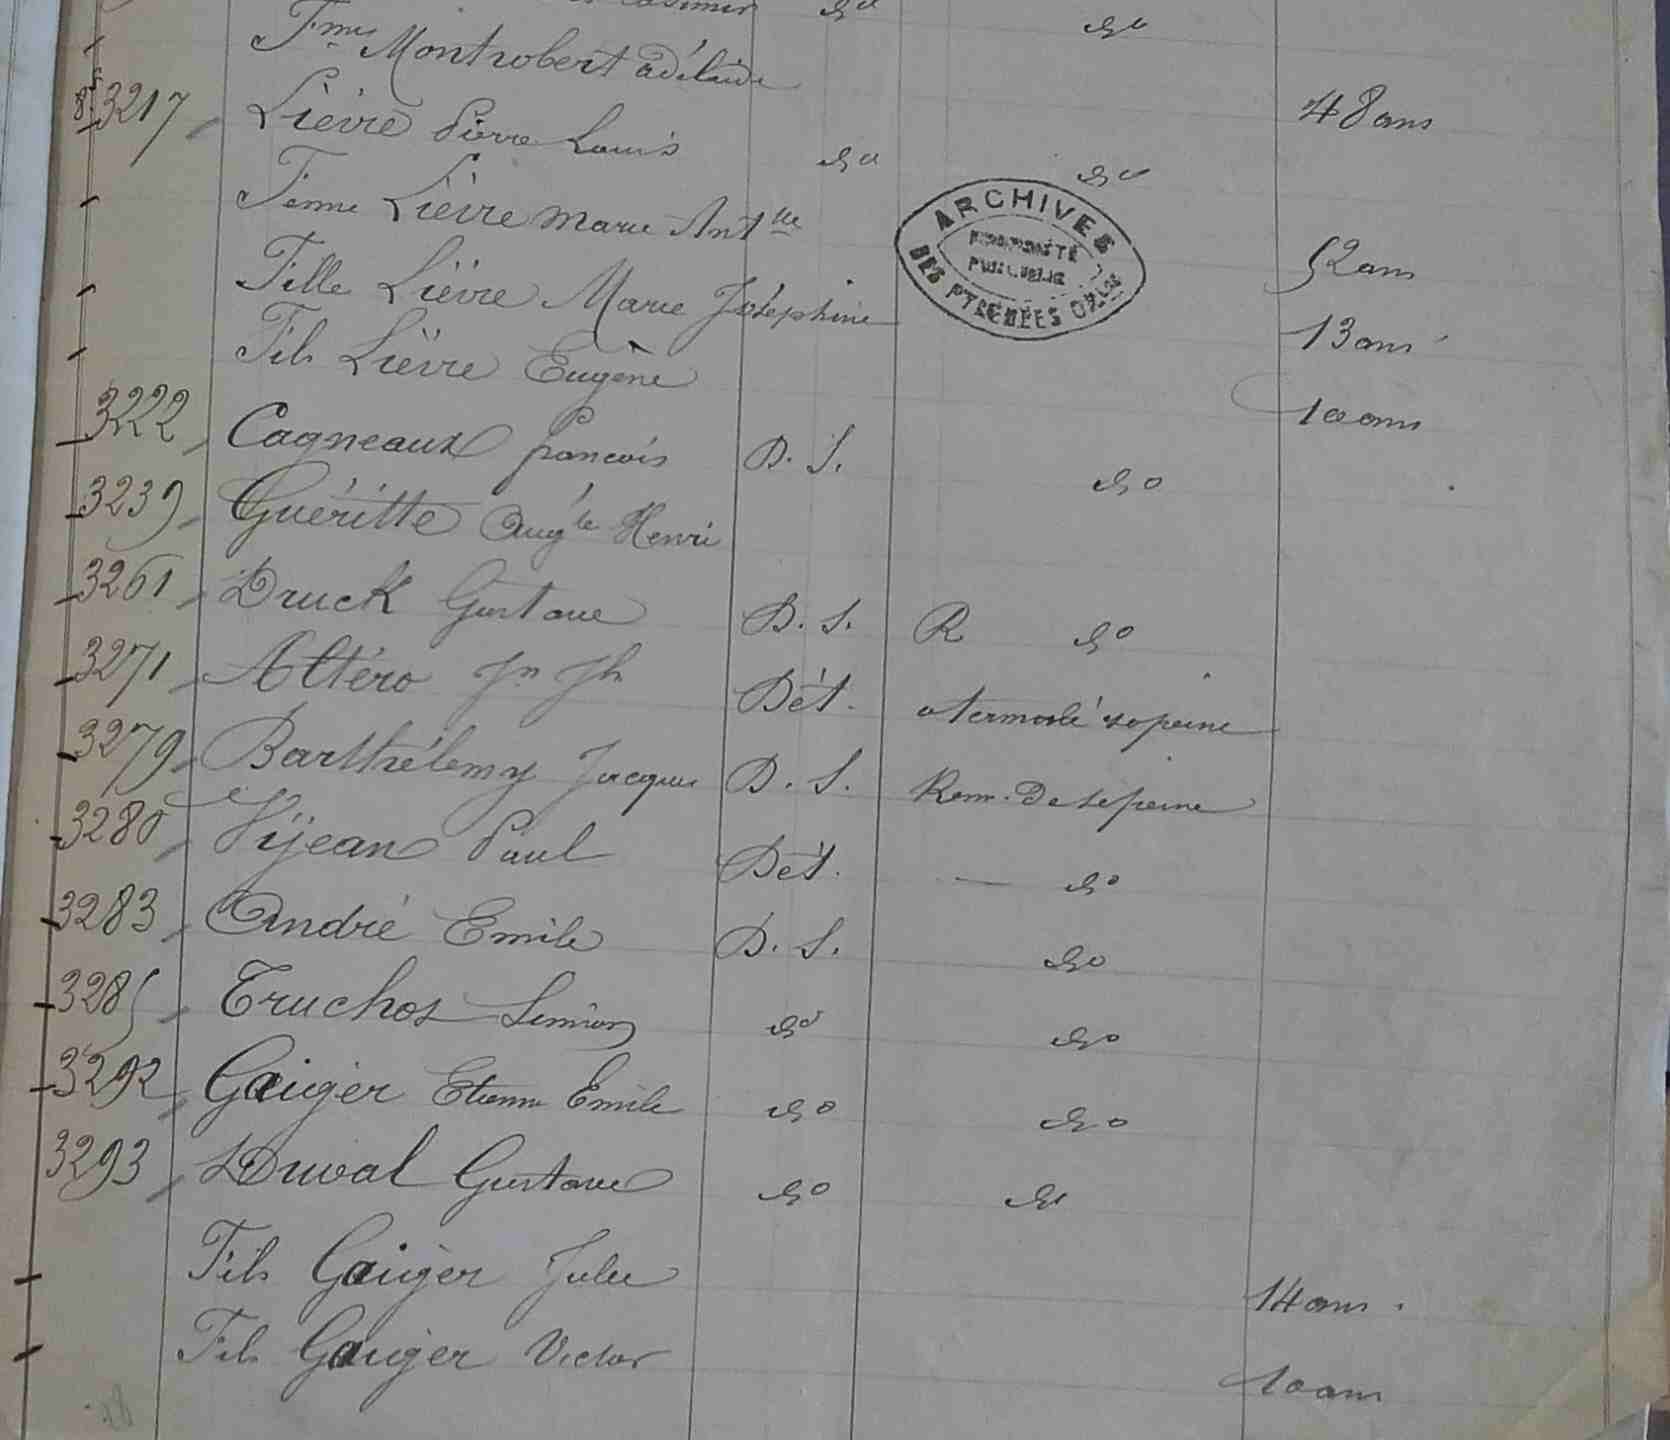 do do
Fme Montrobert adélaïde 48 ans
3217 Lièvre Pierre Louis do do
Femme Lièvre Marie Antlle 52 ans
Fille Lièvre Marie Joséphine 13 ans
Fils Lièvre Eugène 10 ans
3222 Cagneaux francois D. S. do
3239 Guéritte Augte Henri
3261 Druck Gustave D. S. R do
3271 Altéro Jn Jh Dét. a terminé sa peine
3279 Barthélemy Jacques D. S. Rem. De sa peine
3280 Vijean Paul Dét. — do
3283 André Emile D. S. do
3285 Truchot Simion do do
3292 Gaiger Etienne Emile do do
3293 Duval Gustave do do
Fils Gaiger Jules 14 ans.
Fils Gaiger Victor 10 ans
ARCHIVES
PROPRIÉTÉ
PUBLIQUE
DES PYRÉNÉES ORLES